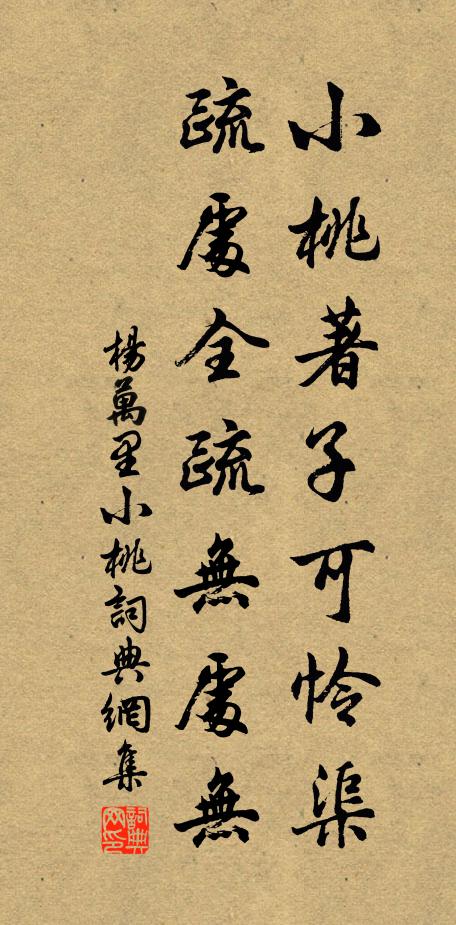 小桃著子可怜渠
疏處全疏無處無
楊萬里小桃詞典網集
詞典网印